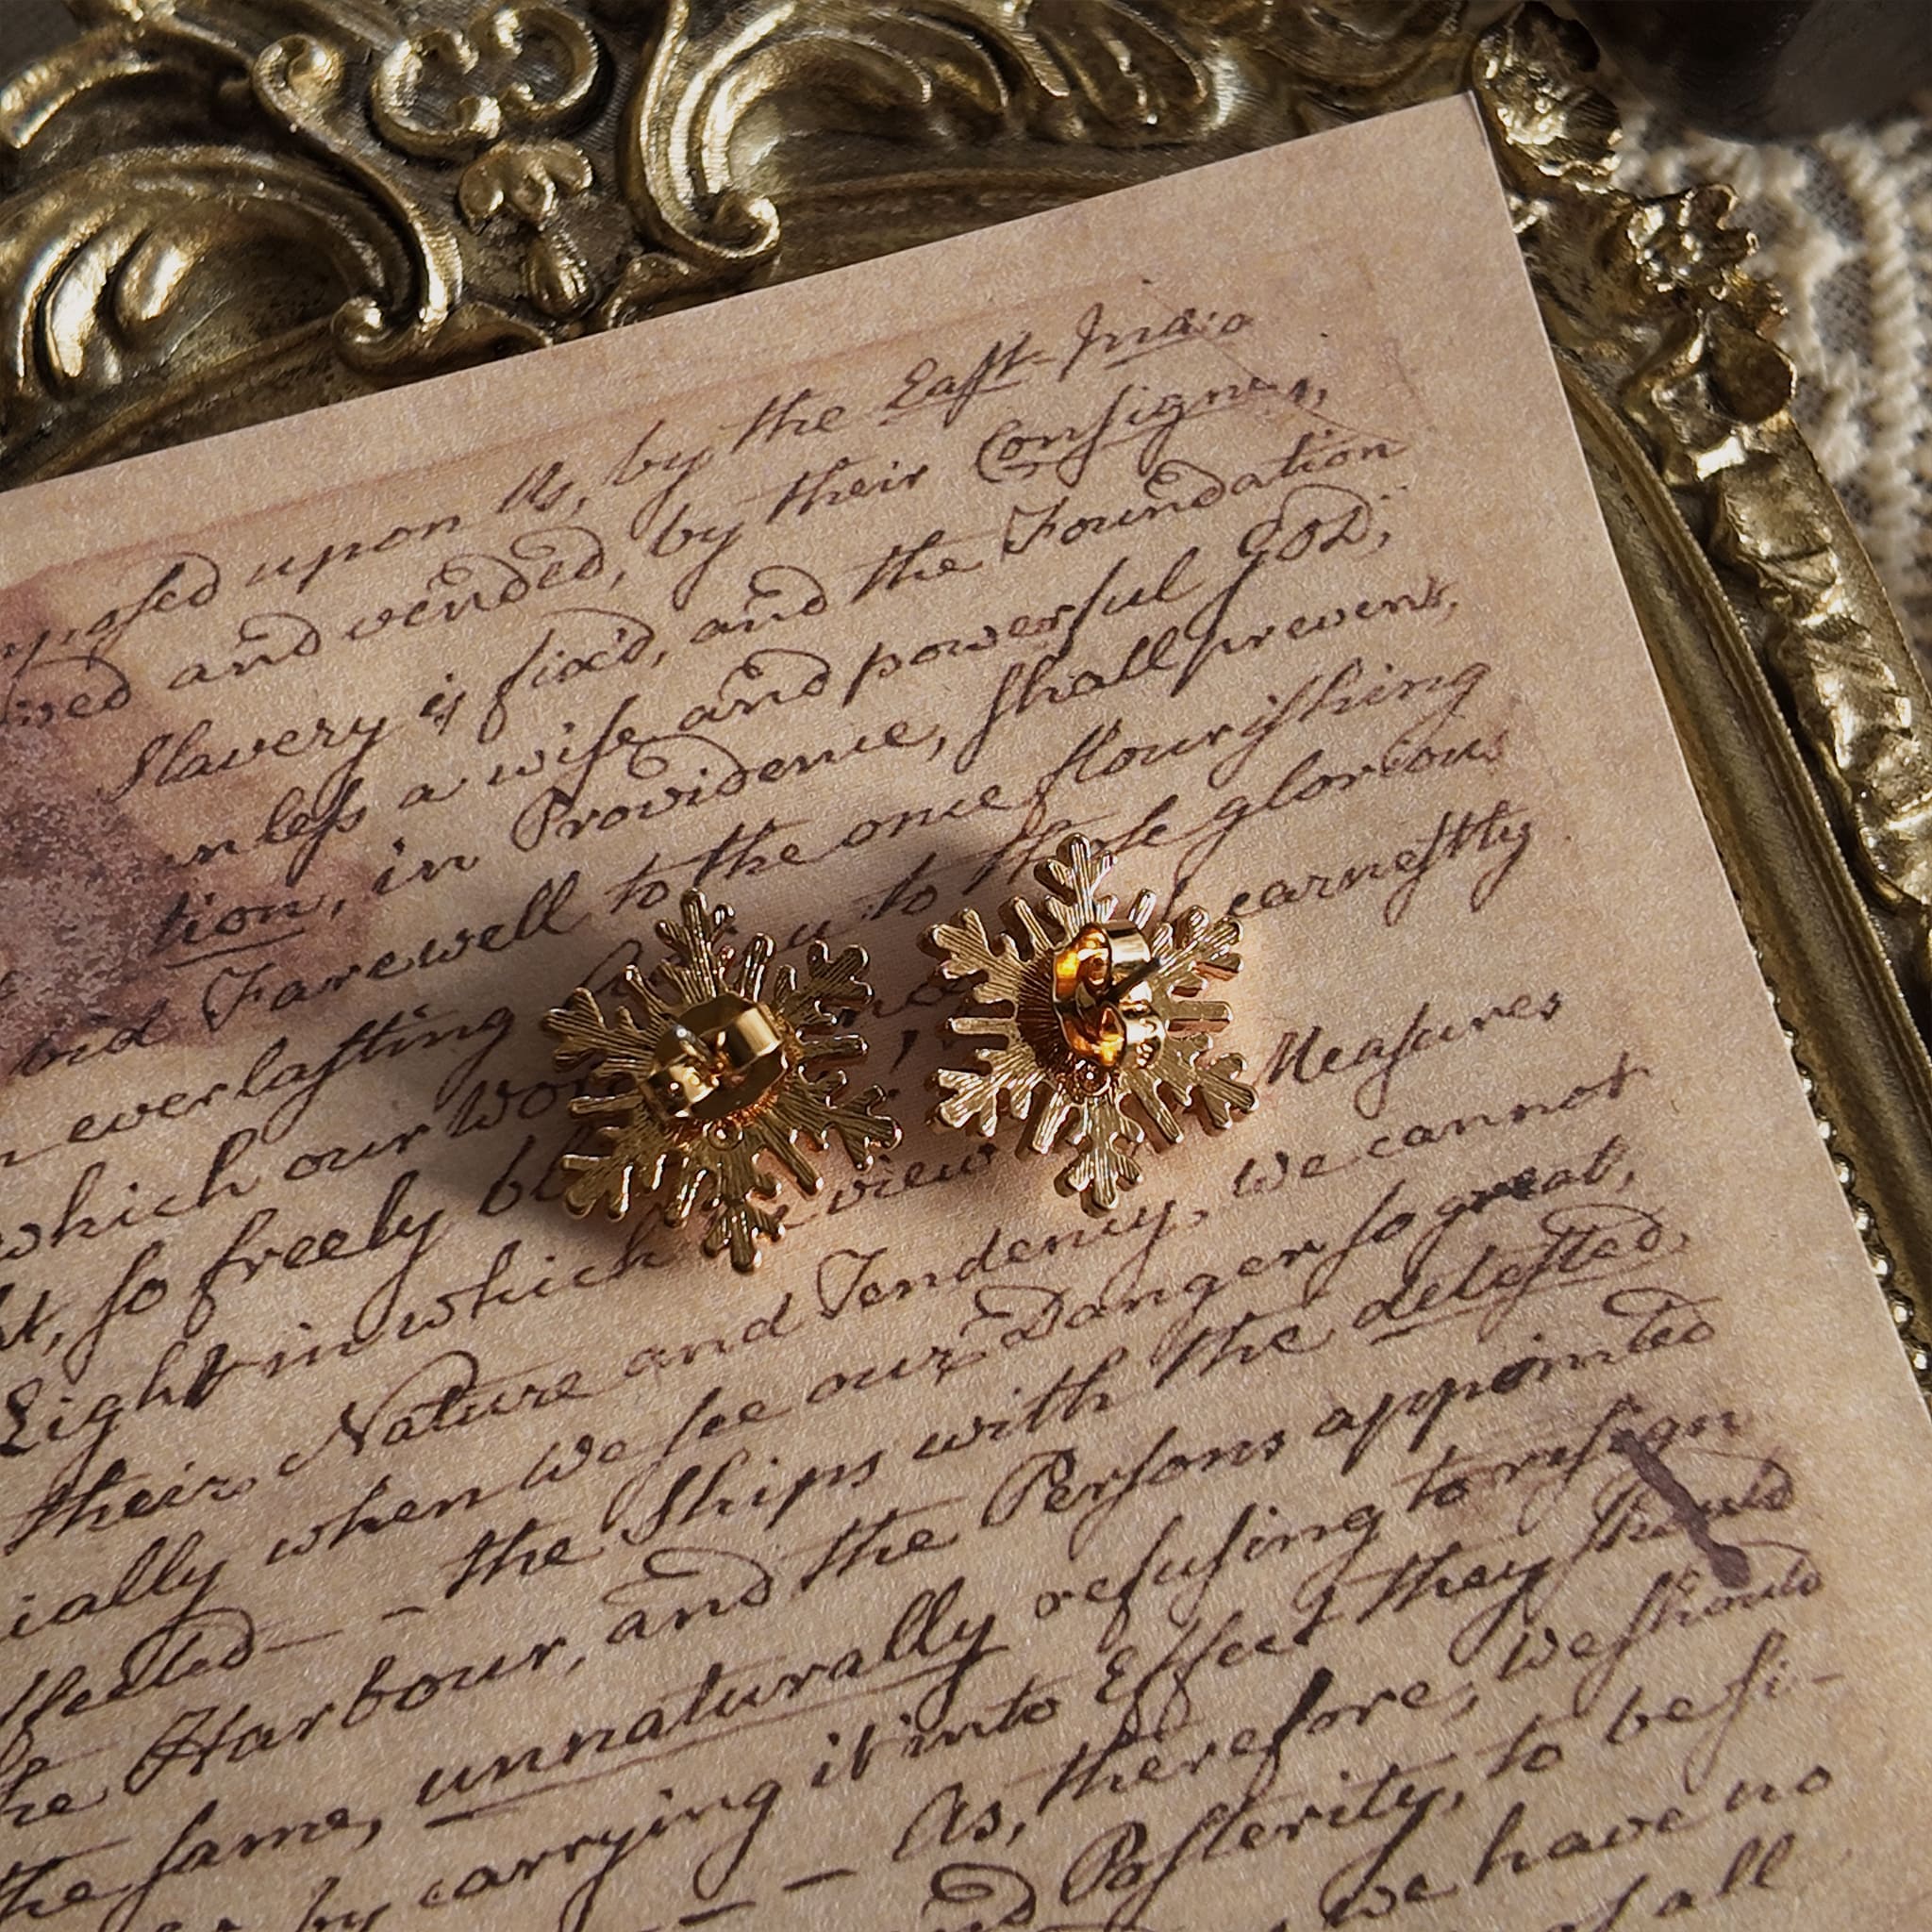 upon Us, by the Eaſt-India
and vended, by their Conſignees,
Slavery is fixed, and the Foundation
unleſs a wiſe and powerful GOD,
tion, in Providence, ſhall prevent,
bid Farewell to the once flouriſhing
everlaſting to thoſe glorious
which our earneſtly
ht, ſo freely Meaſures
Light in which view
their Nature and Tendency, we cannot
ially when we ſee our Danger ſo great,
ffected — the Ships with the deteſted
Harbour, and the Perſons appointed
the ſame, unnaturally refuſing to reſign
by carrying it into Effect they ſhould
— As, therefore, we ſhould
Poſterity, to be ſi-
we have no
all